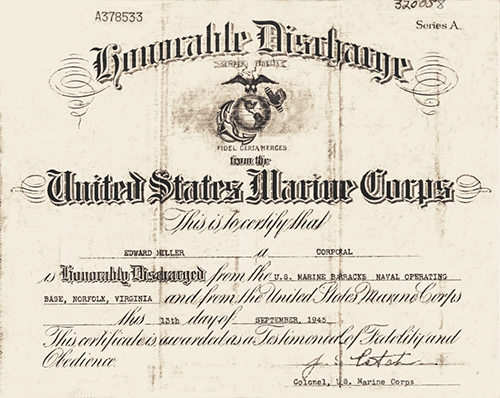 A378533
320058
Series A
Honorable Discharge
SEMPER FIDELIS
FIDEL CERTAMERCES
from the
United States Marine Corps
This is to certify that
EDWARD MILLER a CORPORAL
is Honorably Discharged from the U.S. MARINE BARRACKS NAVAL OPERATING
BASE, NORFOLK, VIRGINIA and from the United States Marine Corps
this 13th day of SEPTEMBER, 1945
This certificate is awarded as a Testimonial of Fidelity and
Obedience.
Colonel, U.S. Marine Corps